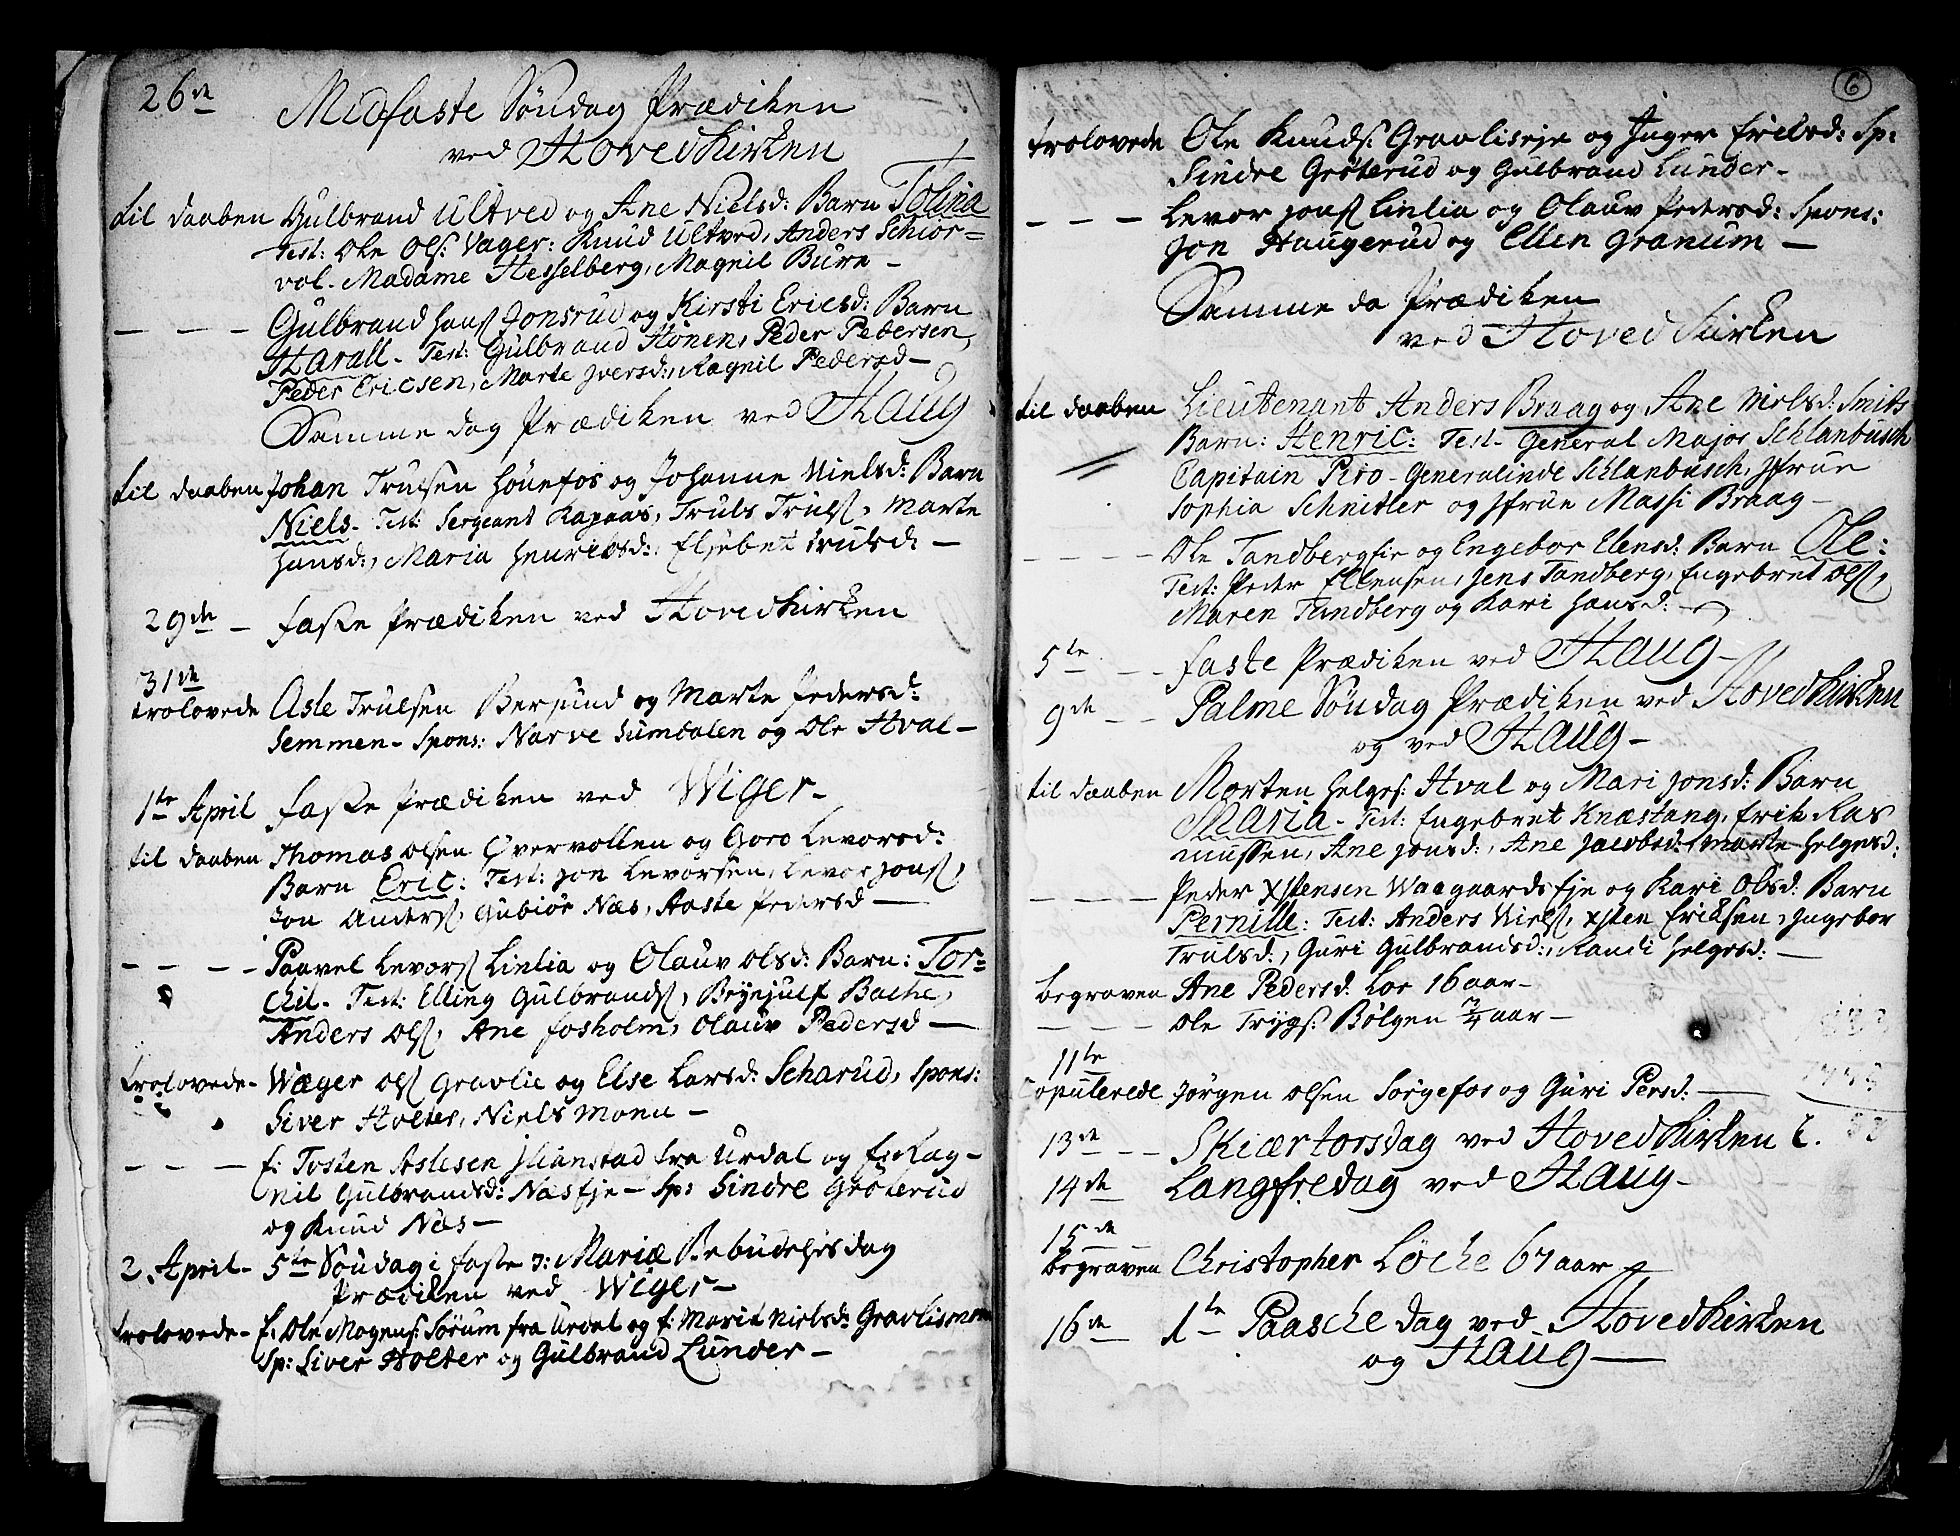 26de Midfaste Söndag Prædiken
ved Hovedkirken
til daaben Gulbrand Ultved og Ane Nielsd: Barn Tolina
Test: Ole Ols: Vager: Knud Ultved, Anders Schior=
vol. Madame Hesselberg, Magnil Bure -
- - - Gulbrand Hans Jonsrud og Kirsti Ericsd: Barn
Harall - Test: Gulbrand Hønen, Peder Pedersen,
Peder Ericsen, Marte Jversd:, Ragnil Pedersd -
Samme dag Prædiken ved Haug
til daaben Johan Trulsen Hönefos og Johanne Nielsd: Barn
Niels - Test: Sergeant Kapaas, Truls Truls, Marte
Hansd:, Maria Henrichsd:, Elsebet trulsd: -
29de - Faste Prædiken ved Hovedkirken
31de
trolovede Asle Trulsen Bersund og Marte Pedersd:
Semmen - Spons: Narve Sumdalen og Ole Hval -
1te April Faste Prædiken ved Wiger -
til daaben Thomas Olsen Øvervollen og Goro Levorsd:
Barn Eric: Test: Jon Levorsen, Levor Jons,
Jon Anders, Gubiör Næs, Aaste Pedersd -
- - - - Paavel Levors Linlia og Olauv Olsd: Barn: Tor=
chil - Test: Elling Gulbrands, Brynjulf Bache,
Anders Ols, Ane Fosholm, Olauv Pedersd -
trolovede - Wæger Ols Gravlie og Else Larsd: Scharud, Spons:
Siver Holter, Niels Moen -
- - - f: Tosten Aslesen fra Urdal og f: Rag-
nil Gulbrandsd: Næsejе - Sp: Sindre Gröterud
og Knud Næs -
2. April - 5te Söndag i faste ɔ: Mariæ Bebudelsis dag
Prædiken ved Wiger -
trolovede - f: Ole Mogens: Sörum fra Urdal og f: Marit Nielsd: Gravlismoen
Sp: Siver Holter og Gulbrand Lunder -
6
trolovede Ole Knuds: Gravliseje og Inger Erichsd: Sp:
Sindre Gröterud og Gulbrand Lunder -
- - - Levor Jons Linlia og Olauv Pedersd: Spons:
Jon Haugerud og Ellen Granum -
Samme da Prædiken
ved Hoved Kirken
til daaben Lieutenant Anders Braag og Ane Nielsd: Smits
Barn: Henric: Test - General Major Schlanbusch
Capitain Piro - Generalinde Schlanbusch, Jfrue
Sophia Schnitler og Jfrue Massi Braag -
- - - - Ole Tandbergeie og Engebor Elensd: Barn Ole:
Test: Peder Ellensen, Jens Tandberg, Engebret Ols,
Maren Tandberg og Kari Hansd: -
5te - - Faste Prædiken ved Haug -
9de - - Palme Söndag Prædiken ved Hovedkirken
og ved Haug -
til daaben Morten Helges: Hval og Mari Jonsd: Barn
Maria - Test: Engebret Knæstang, Erik Ras
mussen, Ane Jonsd:, Ane Jacobsd:, Marte Helgesd:
- - - Peder Xstensen Waagaards Eje og Kari Olsd: Barn
Pernille: Test: Anders Niels, Xsten Eriksen, Ingebor
Trulsd:, Guri Gulbrandsd:, Randi Helgesd: -
begraven Ane Pedersd. Loe 16 aar -
- - - Ole Trygs: Bölgen 3/4 aar -
11te
Copulerede Jörgen Olsen Sörgefos og Guri Persd: -
13de - - Skiærtorsdag ved Hovedkirken
14de Langfredag ved Haug -
15de
begraven Christopher Löche 67 aar -
16de 1te Paasche dag ved Hovedkirken
og Haug -